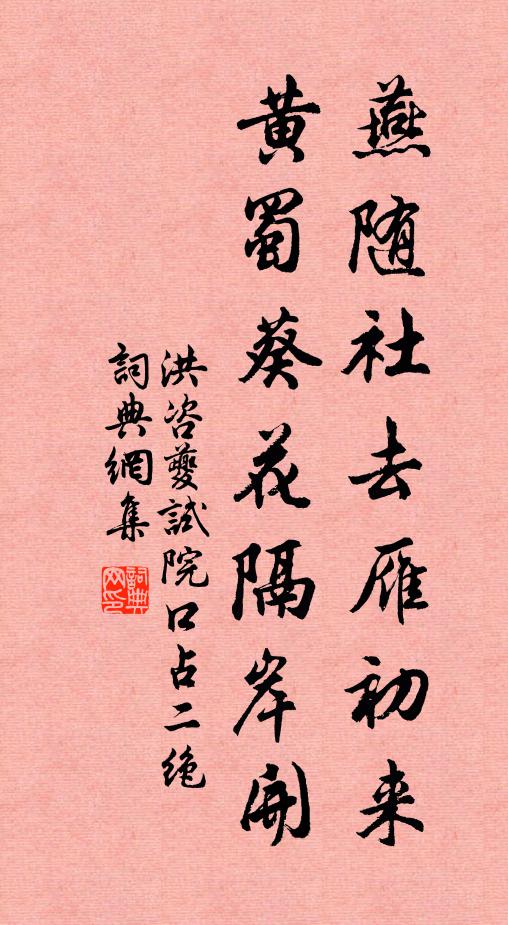 燕随社去雁初来
黄蜀葵花隔岸開
洪咨夔試院口占二绝
詞典網集
詞典网印